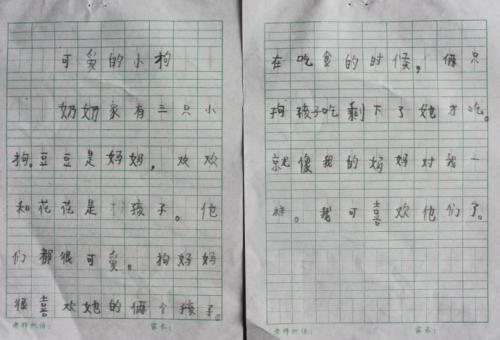 可爱的小狗
奶奶家有三只小
狗。豆豆是妈妈，欢欢
和花花是孩子。他
们都很可爱。狗妈妈
很喜欢她的俩个孩子。
老师批语： 家长：
在吃食的时候，俩只
狗孩子吃剩下了她才吃。
就像我的妈妈对我一
样。我可喜欢他们了。
老师批语： 家长：